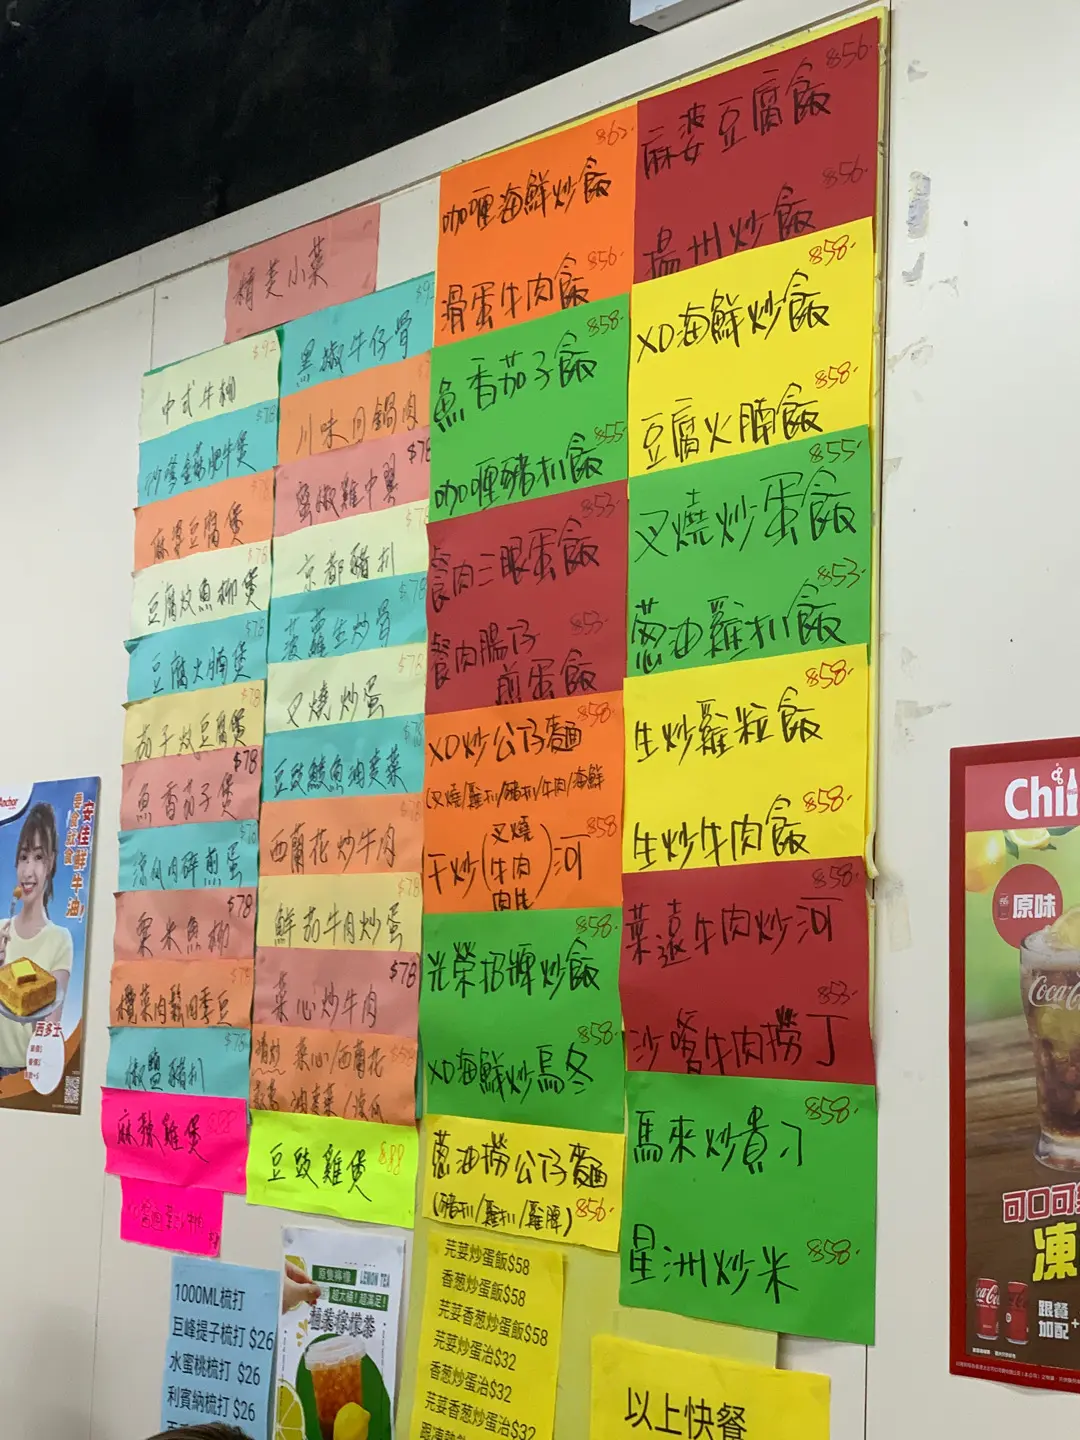 精美小菜
$92
中式牛柳
$78
沙嗲金菇肥牛煲
麻婆豆腐煲
$78
豆腐炆魚柳煲
$78
豆腐火腩煲
$78
茄子炆豆腐煲
$78
魚香茄子煲
涼瓜肉碎煎蛋
$78
粟米魚柳
欖菜肉鬆四季豆
$78
椒鹽豬扒
麻辣雞煲
黑椒牛仔骨
川味回鍋肉
$78
蜜椒雞中翼
$78
京都豬扒
$78
菠蘿生炒骨
$78
叉燒炒蛋
豆豉鯪魚油麥菜
西蘭花炒牛肉
$78
鮮茄牛肉炒蛋
$78
菜心炒牛肉
菜心/西蘭花
油麥菜/涼瓜
豆豉雞煲 $88
$62
咖喱海鮮炒飯
$56
滑蛋牛肉飯
$58
魚香茄子飯
$55
咖喱豬扒飯
$53
餐肉三眼蛋飯
$53
餐肉腸仔
煎蛋飯
$58
XO炒公仔麵
(叉燒/雞扒/豬扒/牛肉/海鮮
$58
干炒(叉燒 牛肉 肉絲)河
$58
光榮招牌炒飯
$58
XO海鮮炒烏冬
蔥油撈公仔麵
(豬扒/雞扒/雞脾) $56
$56
麻婆豆腐飯
$56
揚州炒飯
$58
XO海鮮炒飯
$58
豆腐火腩飯
$55
叉燒炒蛋飯
$53
蔥油雞扒飯
$58
生炒雞粒飯
$58
生炒牛肉飯
$58
菜遠牛肉炒河
$53
沙嗲牛肉撈丁
$58
馬來炒貴刁
星洲炒米 $58
1000ML梳打
巨峰提子梳打 $26
水蜜桃梳打 $26
利賓納梳打 $26
LEMON TEA
芫荽炒蛋飯$58
香葱炒蛋飯$58
芫荽香葱炒蛋飯$58
芫荽炒蛋治$32
香葱炒蛋治$32
芫荽香葱炒蛋治$32
以上快餐
Anchor
安佳鮮牛油!
西多士
Chil
原味
Coca-Co
可口可
凍
跟餐
加配